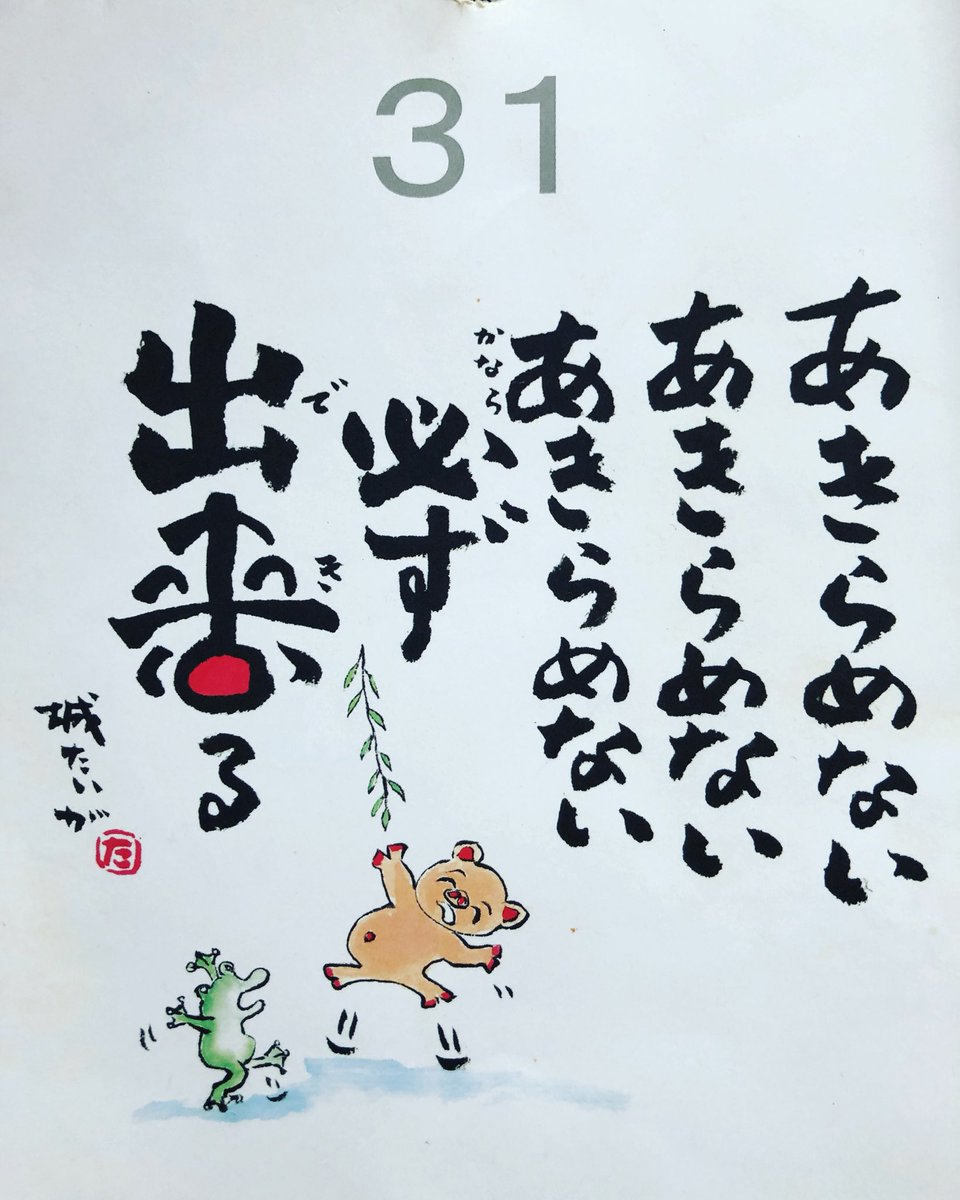 31
あきらめない
あきらめない
あきらめない
かなら
必ず
で
き
出来る
城たいが
た